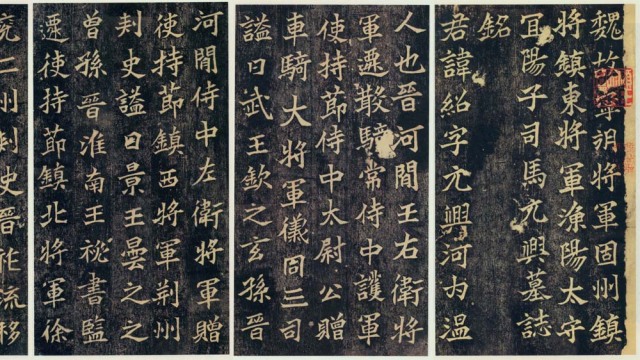 魏故寧朔將軍固州鎮
將鎮東將軍漁陽太守
宜陽子司馬元興墓誌
銘
君諱紹字元興河內溫
人也晉河間王右衛將
軍遷散騎常侍中護軍
使持節侍中太尉公贈
車騎大將軍儀同三司
謚曰武王欽之玄孫晉
河間侍中左衛將軍贈
使持節鎮西將軍荊州
刺史謚曰景王曇之之
曾孫晉淮南王祕書監
遷使持節鎮北將軍徐
兗二州刺史晉祚流移